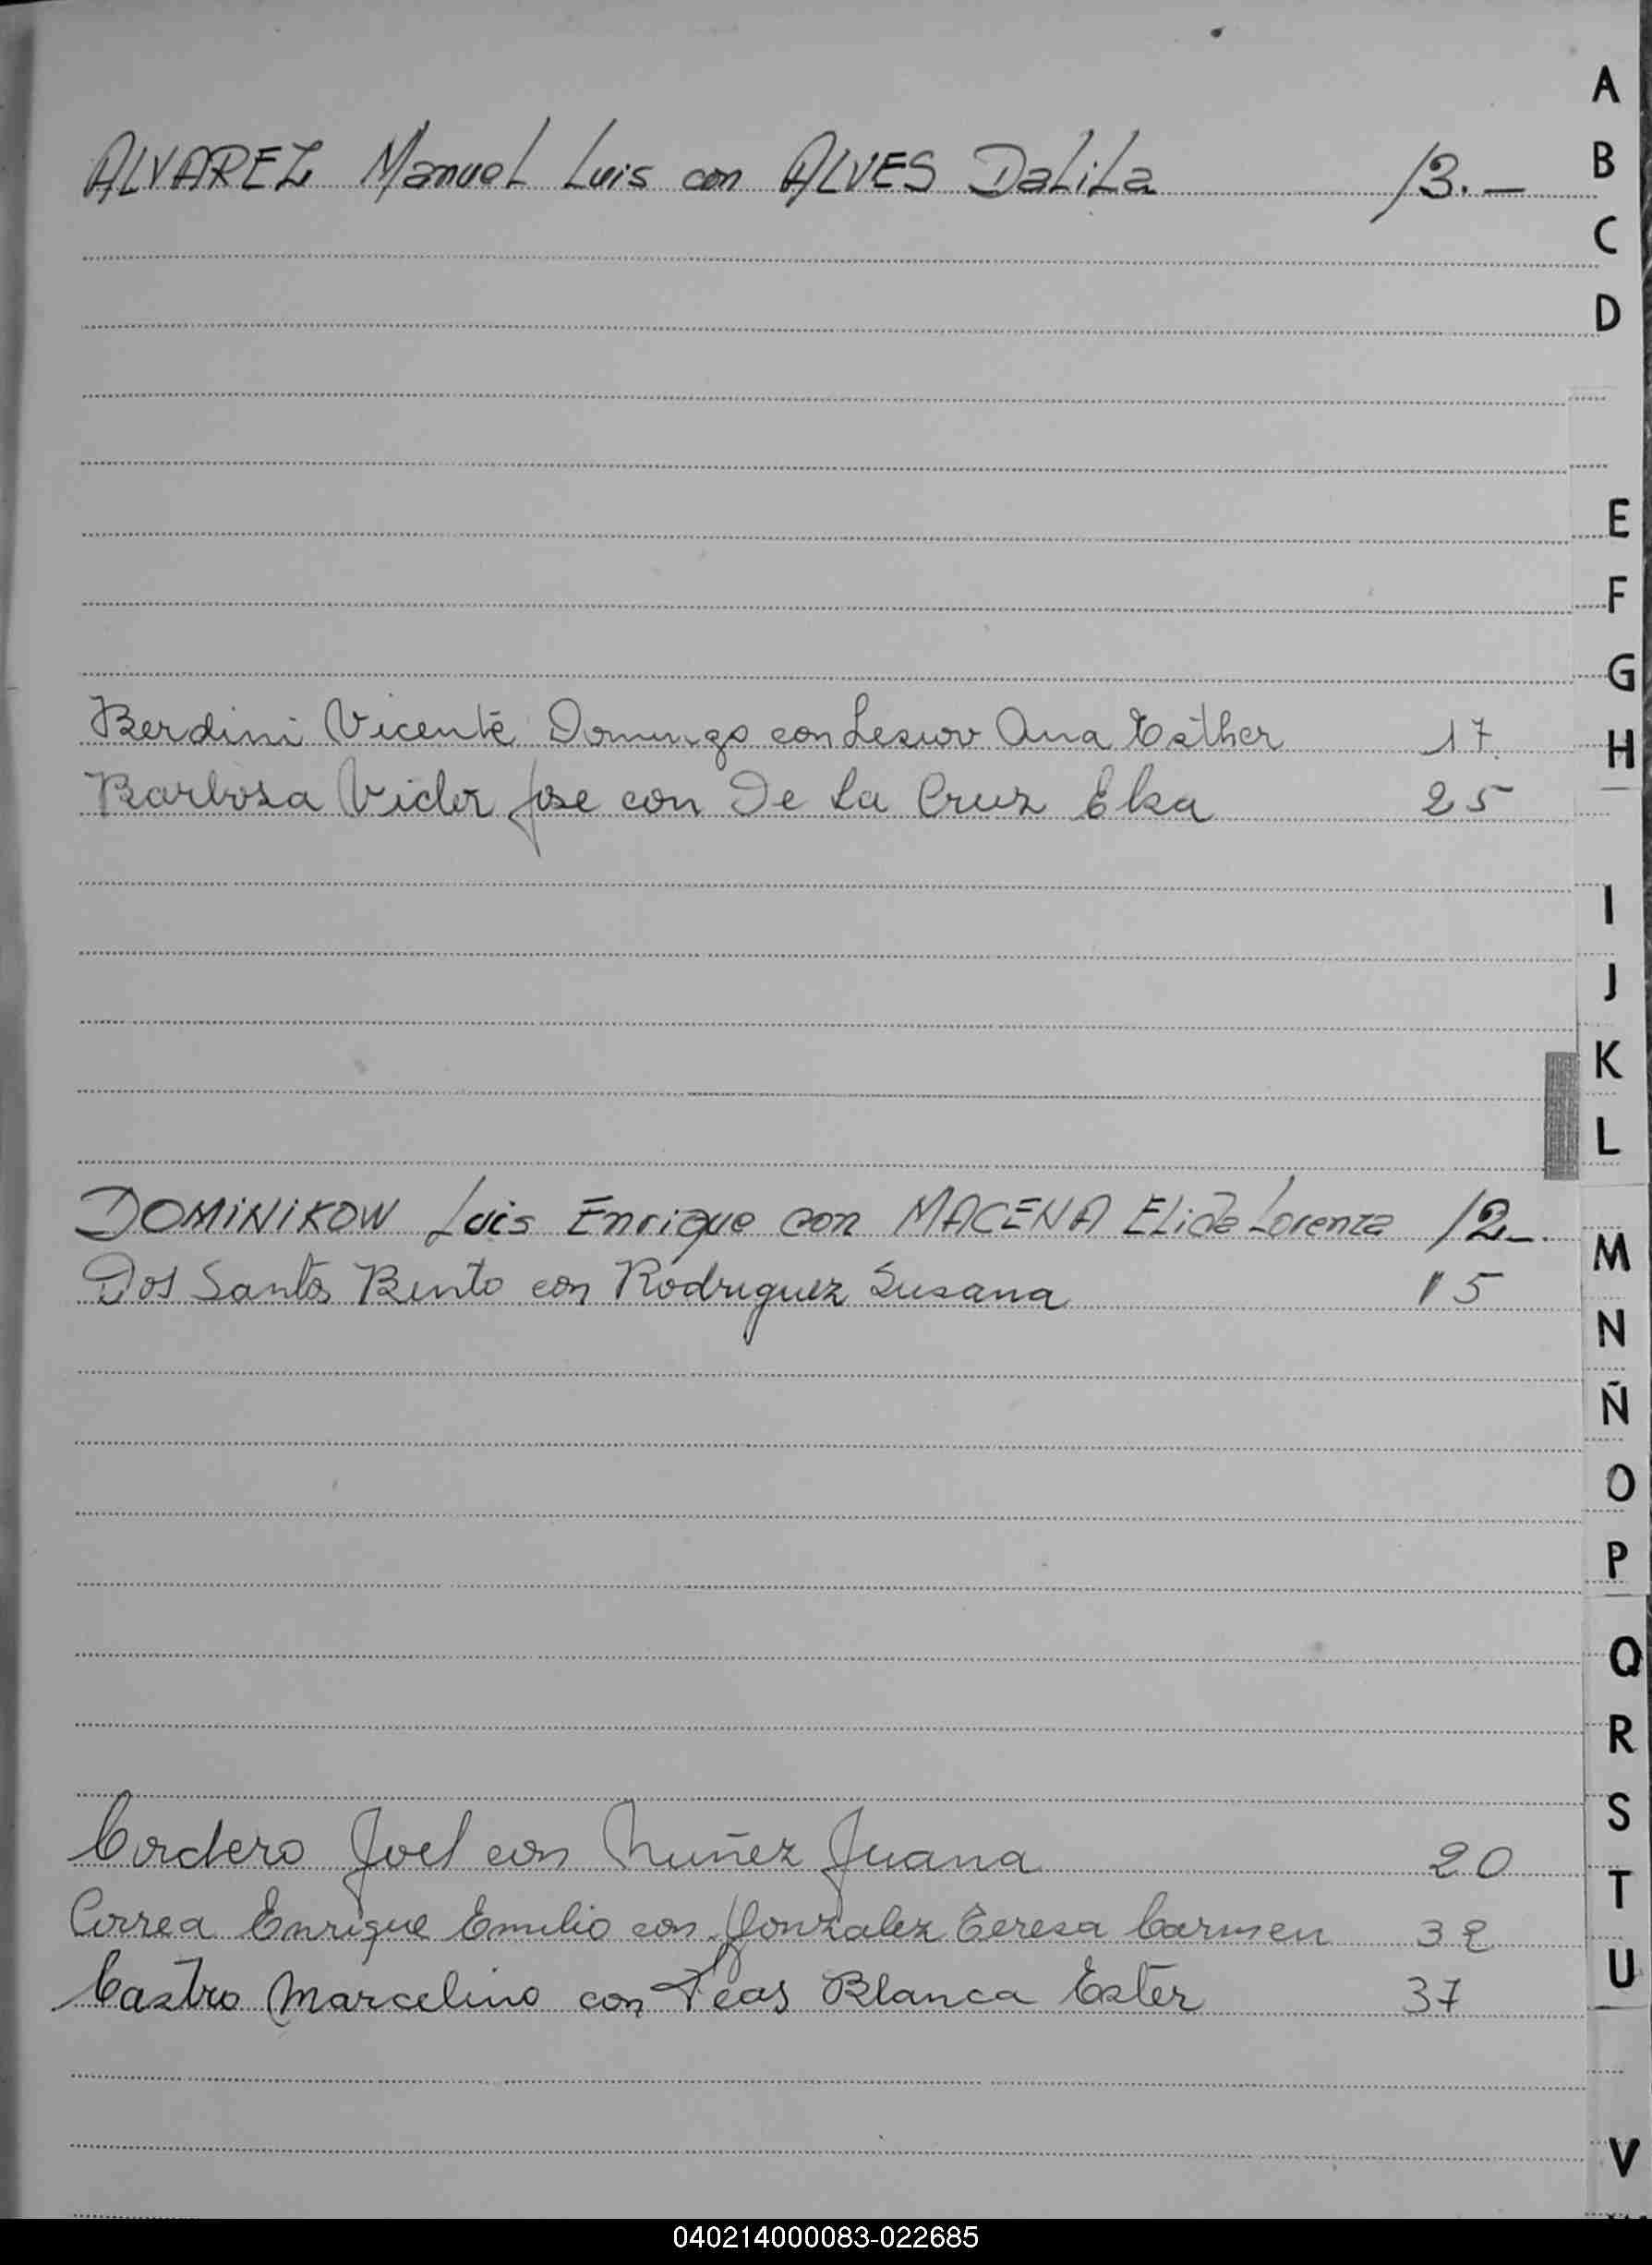 ALVAREZ Manuel Luis con ALVES DaLiLa 13.—
Berdini Vicente Domingo con Ana Esther 17
Barbosa Victor Jose con De La Cruz Elsa 25
DOMiNiKOW Luis Enrique con MACENA ELida Lorenza 12.—
Dos Santos Bento con Rodriguez Susana 15
Cordero Joel con Nuñez Juana 20
Correa Enrique Emilio con Gonzalez Teresa Carmen 32
Castro Marcelino con Blanca Ester 37
A
B
C
D
E
F
G
H
I
J
K
L
M
N
Ñ
O
P
Q
R
S
T
U
V
040214000083-022685